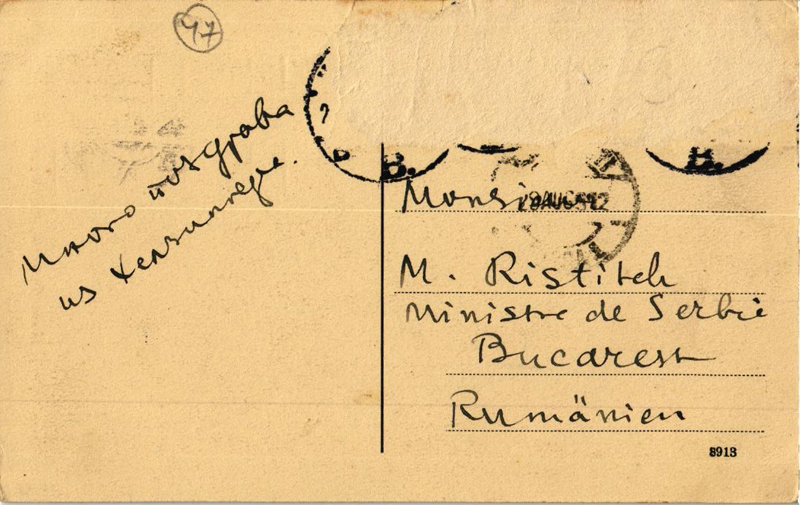 47
Много поздрава
из Хелзингеře.
B.
B.
Monsieur
28 AUG 912
M. Ristitch
Ministre de Serbie
Bucarest
Rumänien
8913